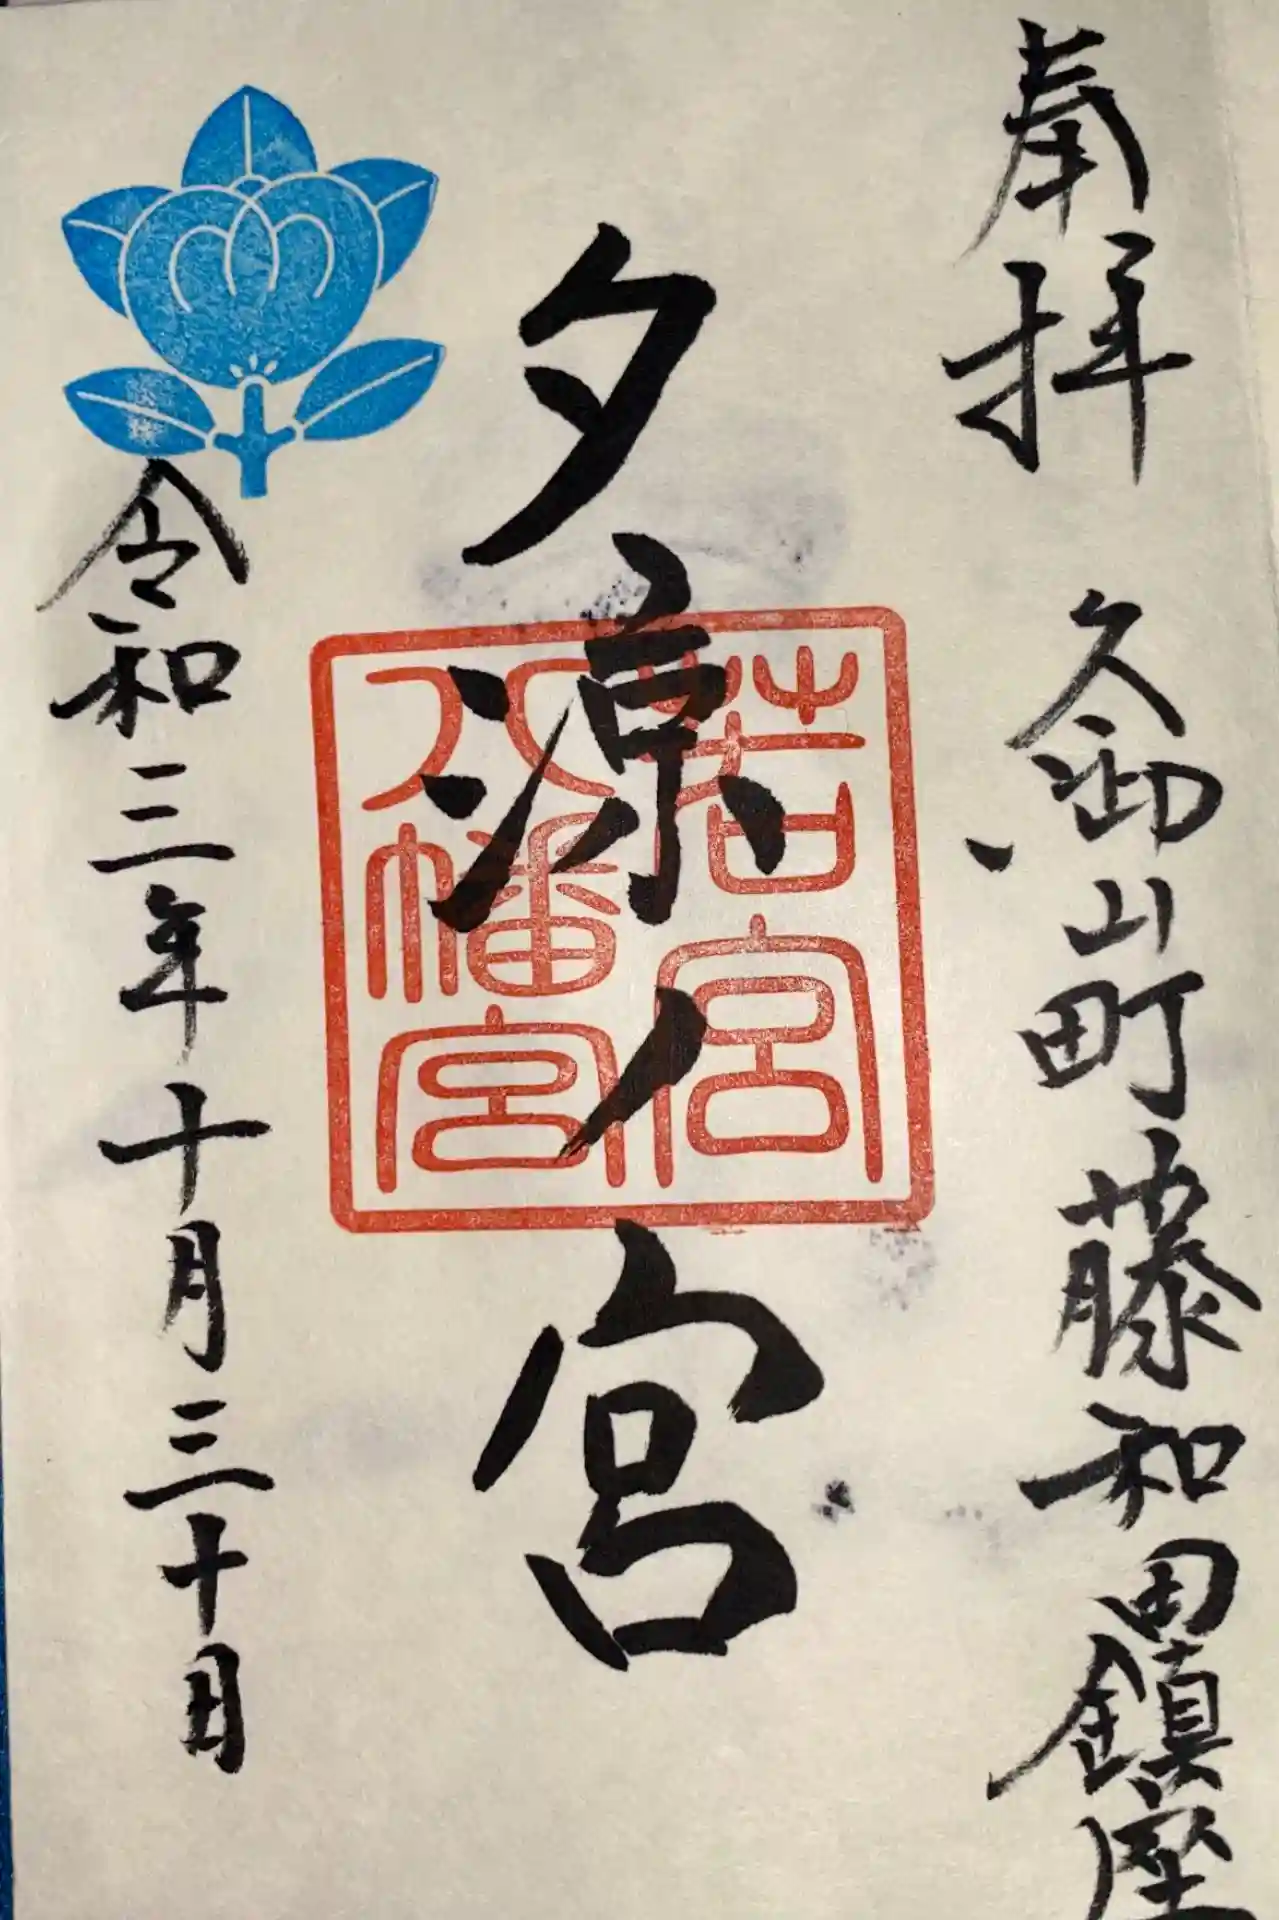 奉拝　久御山町藤和田鎮座
夕涼ノ宮
若宮
八幡宮
令和三年十月三十日